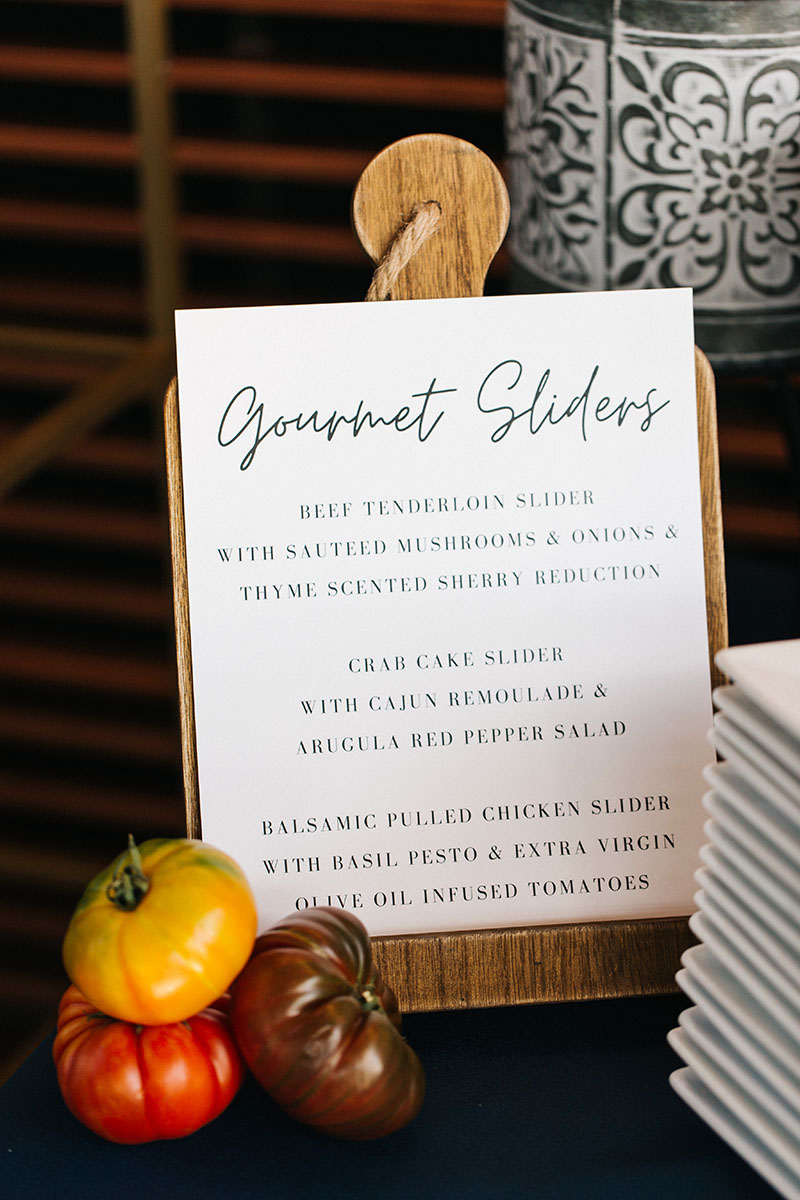 Gourmet Sliders
BEEF TENDERLOIN SLIDER
WITH SAUTEED MUSHROOMS & ONIONS &
THYME SCENTED SHERRY REDUCTION
CRAB CAKE SLIDER
WITH CAJUN REMOULADE &
ARUGULA RED PEPPER SALAD
BALSAMIC PULLED CHICKEN SLIDER
WITH BASIL PESTO & EXTRA VIRGIN
OLIVE OIL INFUSED TOMATOES